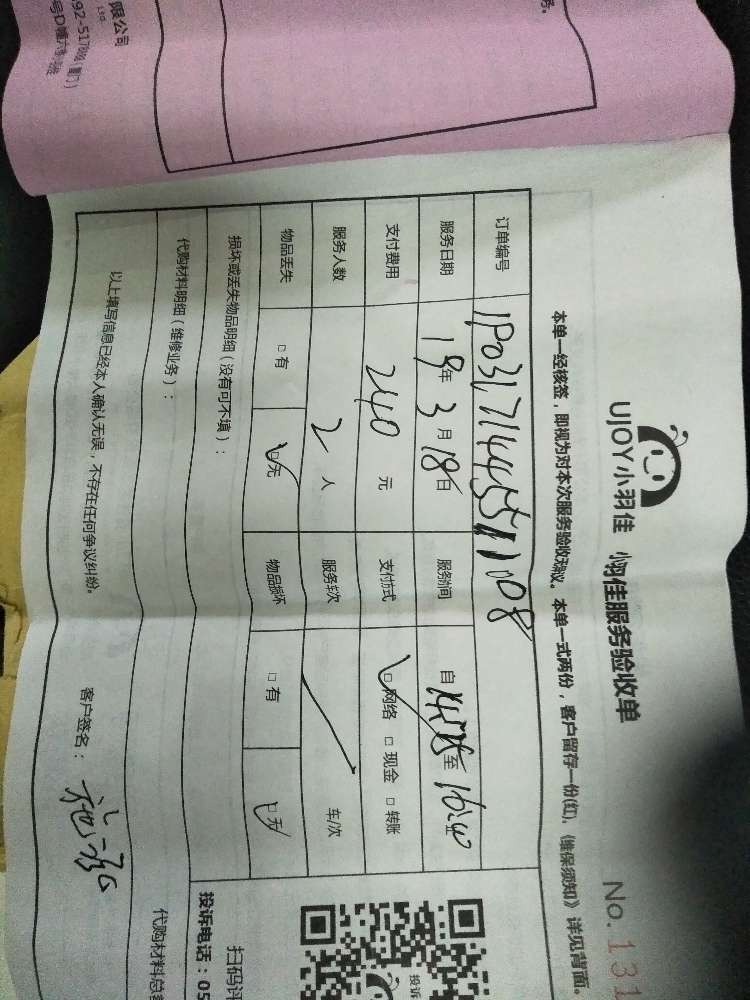 限公司
务。
UJOY小羽佳 小羽佳服务验收单
No.131
本单一经核签，即视为对本次服务验收无异议。本单一式两份，客户留存一份(红)，《维保须知》详见背面。
订单编号 1P03171445511108
服务日期 19年3月18日 服务时间 自 至16:40
支付费用 240元 支付方式 □网络 □现金 □转账
服务人数 2人 服务车次 车/次
物品丢失 □有 □无 物品损坏 □有 □无
损坏或丢失物品明细（没有可不填）：
代购材料明细（维修业务）：
代购材料总
以上填写信息已经本人确认无误，不存在任何争议纠纷。
客户签名：
投诉
扫码评
投诉电话：05